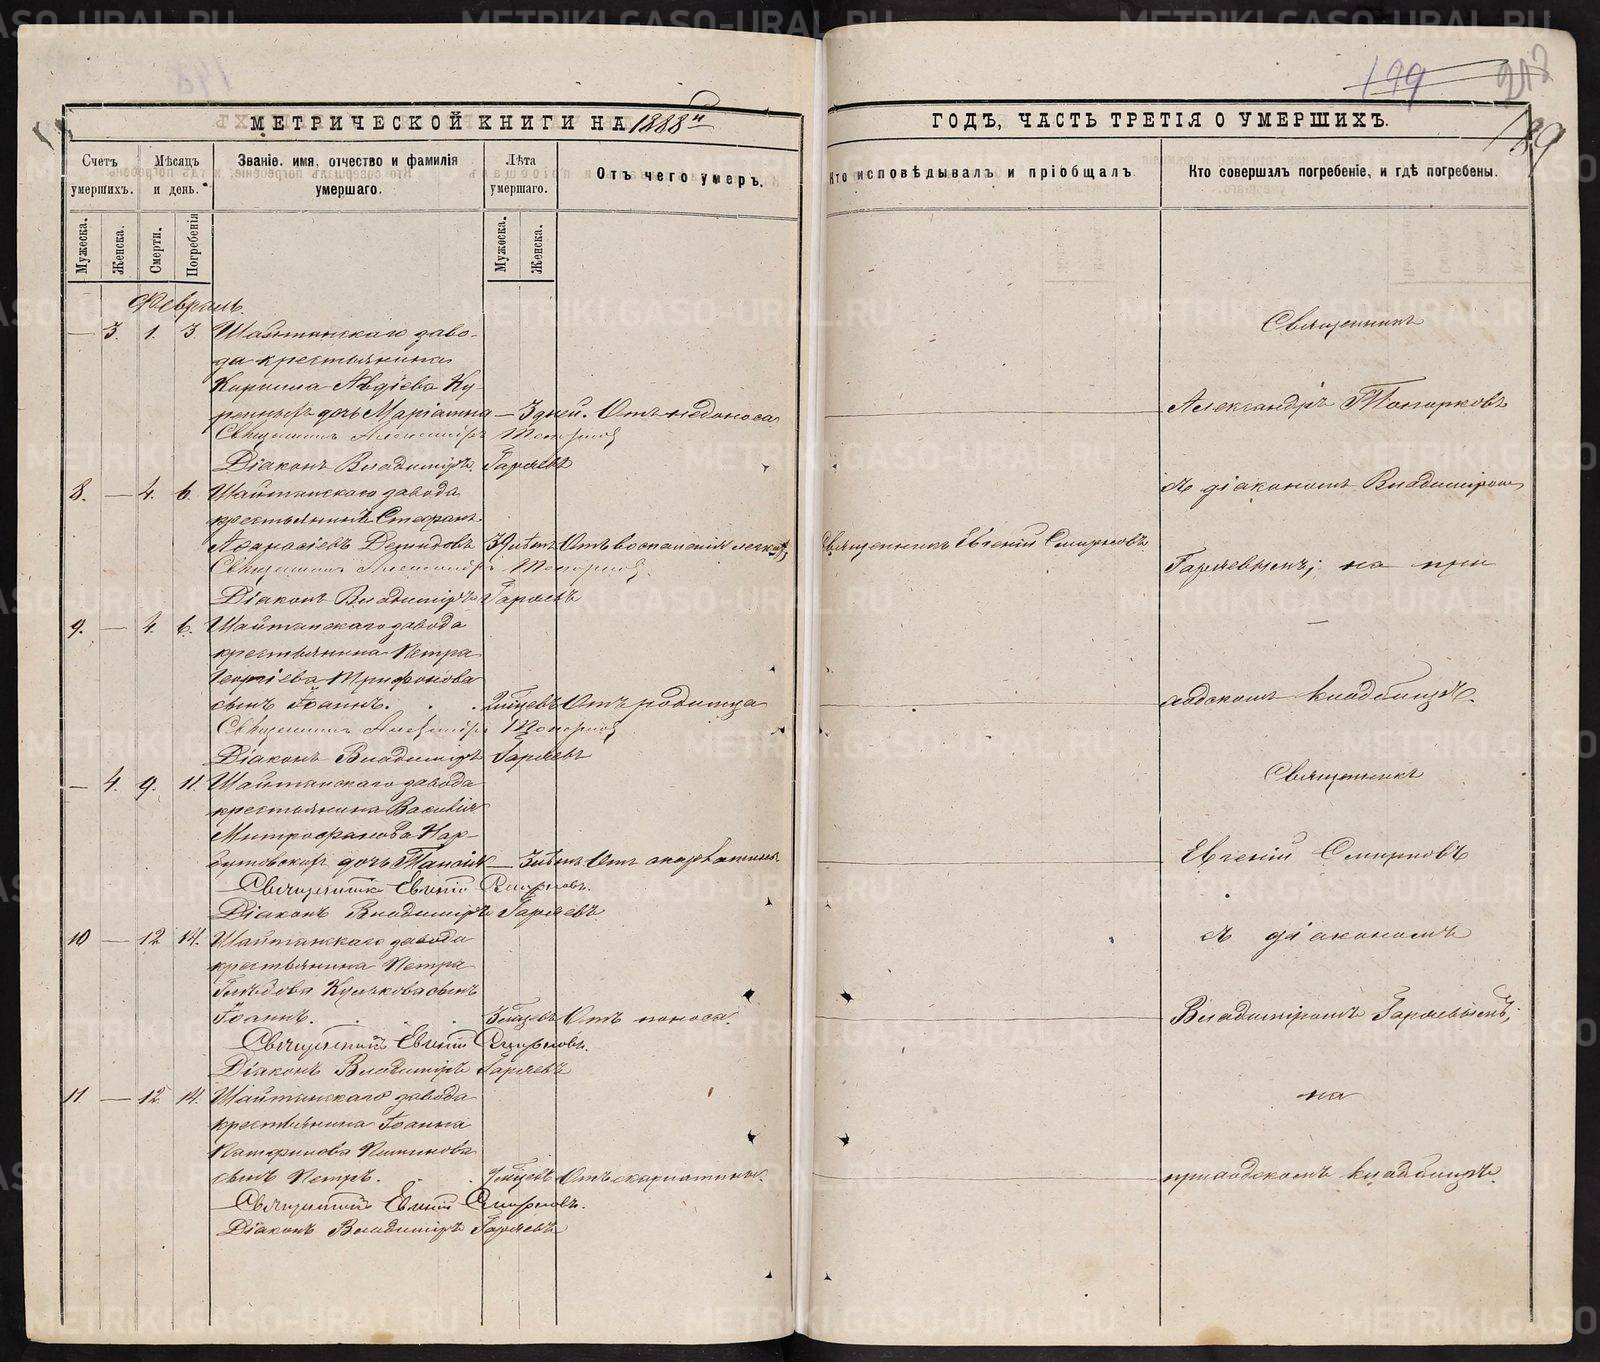 199
212
189
МЕТРИЧЕСКОЙ КНИГИ НА 1888й
ГОДЪ, ЧАСТЬ ТРЕТІЯ О УМЕРШИХЪ.
Счетъ умершихъ.
Мѣсяцъ и день.
Званіе, имя, отчество и фамилія умершаго.
Лѣта умершаго.
Отъ чего умеръ.
Кто исповѣдывалъ и пріобщалъ.
Кто совершалъ погребеніе, и гдѣ погребены.
Мужеска.
Женска.
Смерти.
Погребенія
Мужеска.
Женска.
Февраль.
— 3. 1. 3. Шайтанскаго заво-
да крестьянина
Кирилла Авдіева Ку-
ренныхъ дочь Маріамна — 3 дней. Отъ недоноса
Священникъ Александръ Топорковъ
Діаконъ Владиміръ Гаряевъ
8. — 4. 6. Шайтанскаго завода
крестьянинъ Стефанъ
Аѳанасіевъ Демидовъ 39 лѣтъ Отъ воспаленія легкихъ Священникъ Евгеній Смирновъ
Священникъ Александръ Топорковъ
Діаконъ Владиміръ Гаряевъ
9. — 4. 6. Шайтанскаго завода
крестьянина Петра
Георгіева Трифонова
сынъ Іоаннъ. Отъ родимца
Священникъ Александръ Топорковъ
Діаконъ Владиміръ Гаряевъ
— 4. 9. 11. Шайтанскаго завода
крестьянина Василія
Митрофанова Нар-
бутовскихъ дочь Таисія — 3 лѣтъ Отъ скарлатины
Священникъ Евгеній Смирновъ.
Діаконъ Владиміръ Гаряевъ
10 — 12 14. Шайтанскаго завода
крестьянина Петра
Глѣбова Кулькова сынъ
Іоаннъ. Отъ поноса.
Священникъ Евгеній Смирновъ.
Діаконъ Владиміръ Гаряевъ
11. — 12. 14. Шайтанскаго завода
крестьянина Іоанна
сынъ Петръ. Отъ скарлатины.
Священникъ Евгеній Смирновъ.
Діаконъ Владиміръ Гаряевъ
Священникъ
Александръ Топорковъ
съ діакономъ Владиміромъ
Гаряевымъ; на при
ходскомъ кладбищѣ.
Священникъ
Евгеній Смирновъ
съ діакономъ
Владиміромъ Гаряевымъ;
на
приходскомъ кладбищѣ.
METRIKI.GASO-URAL.RU